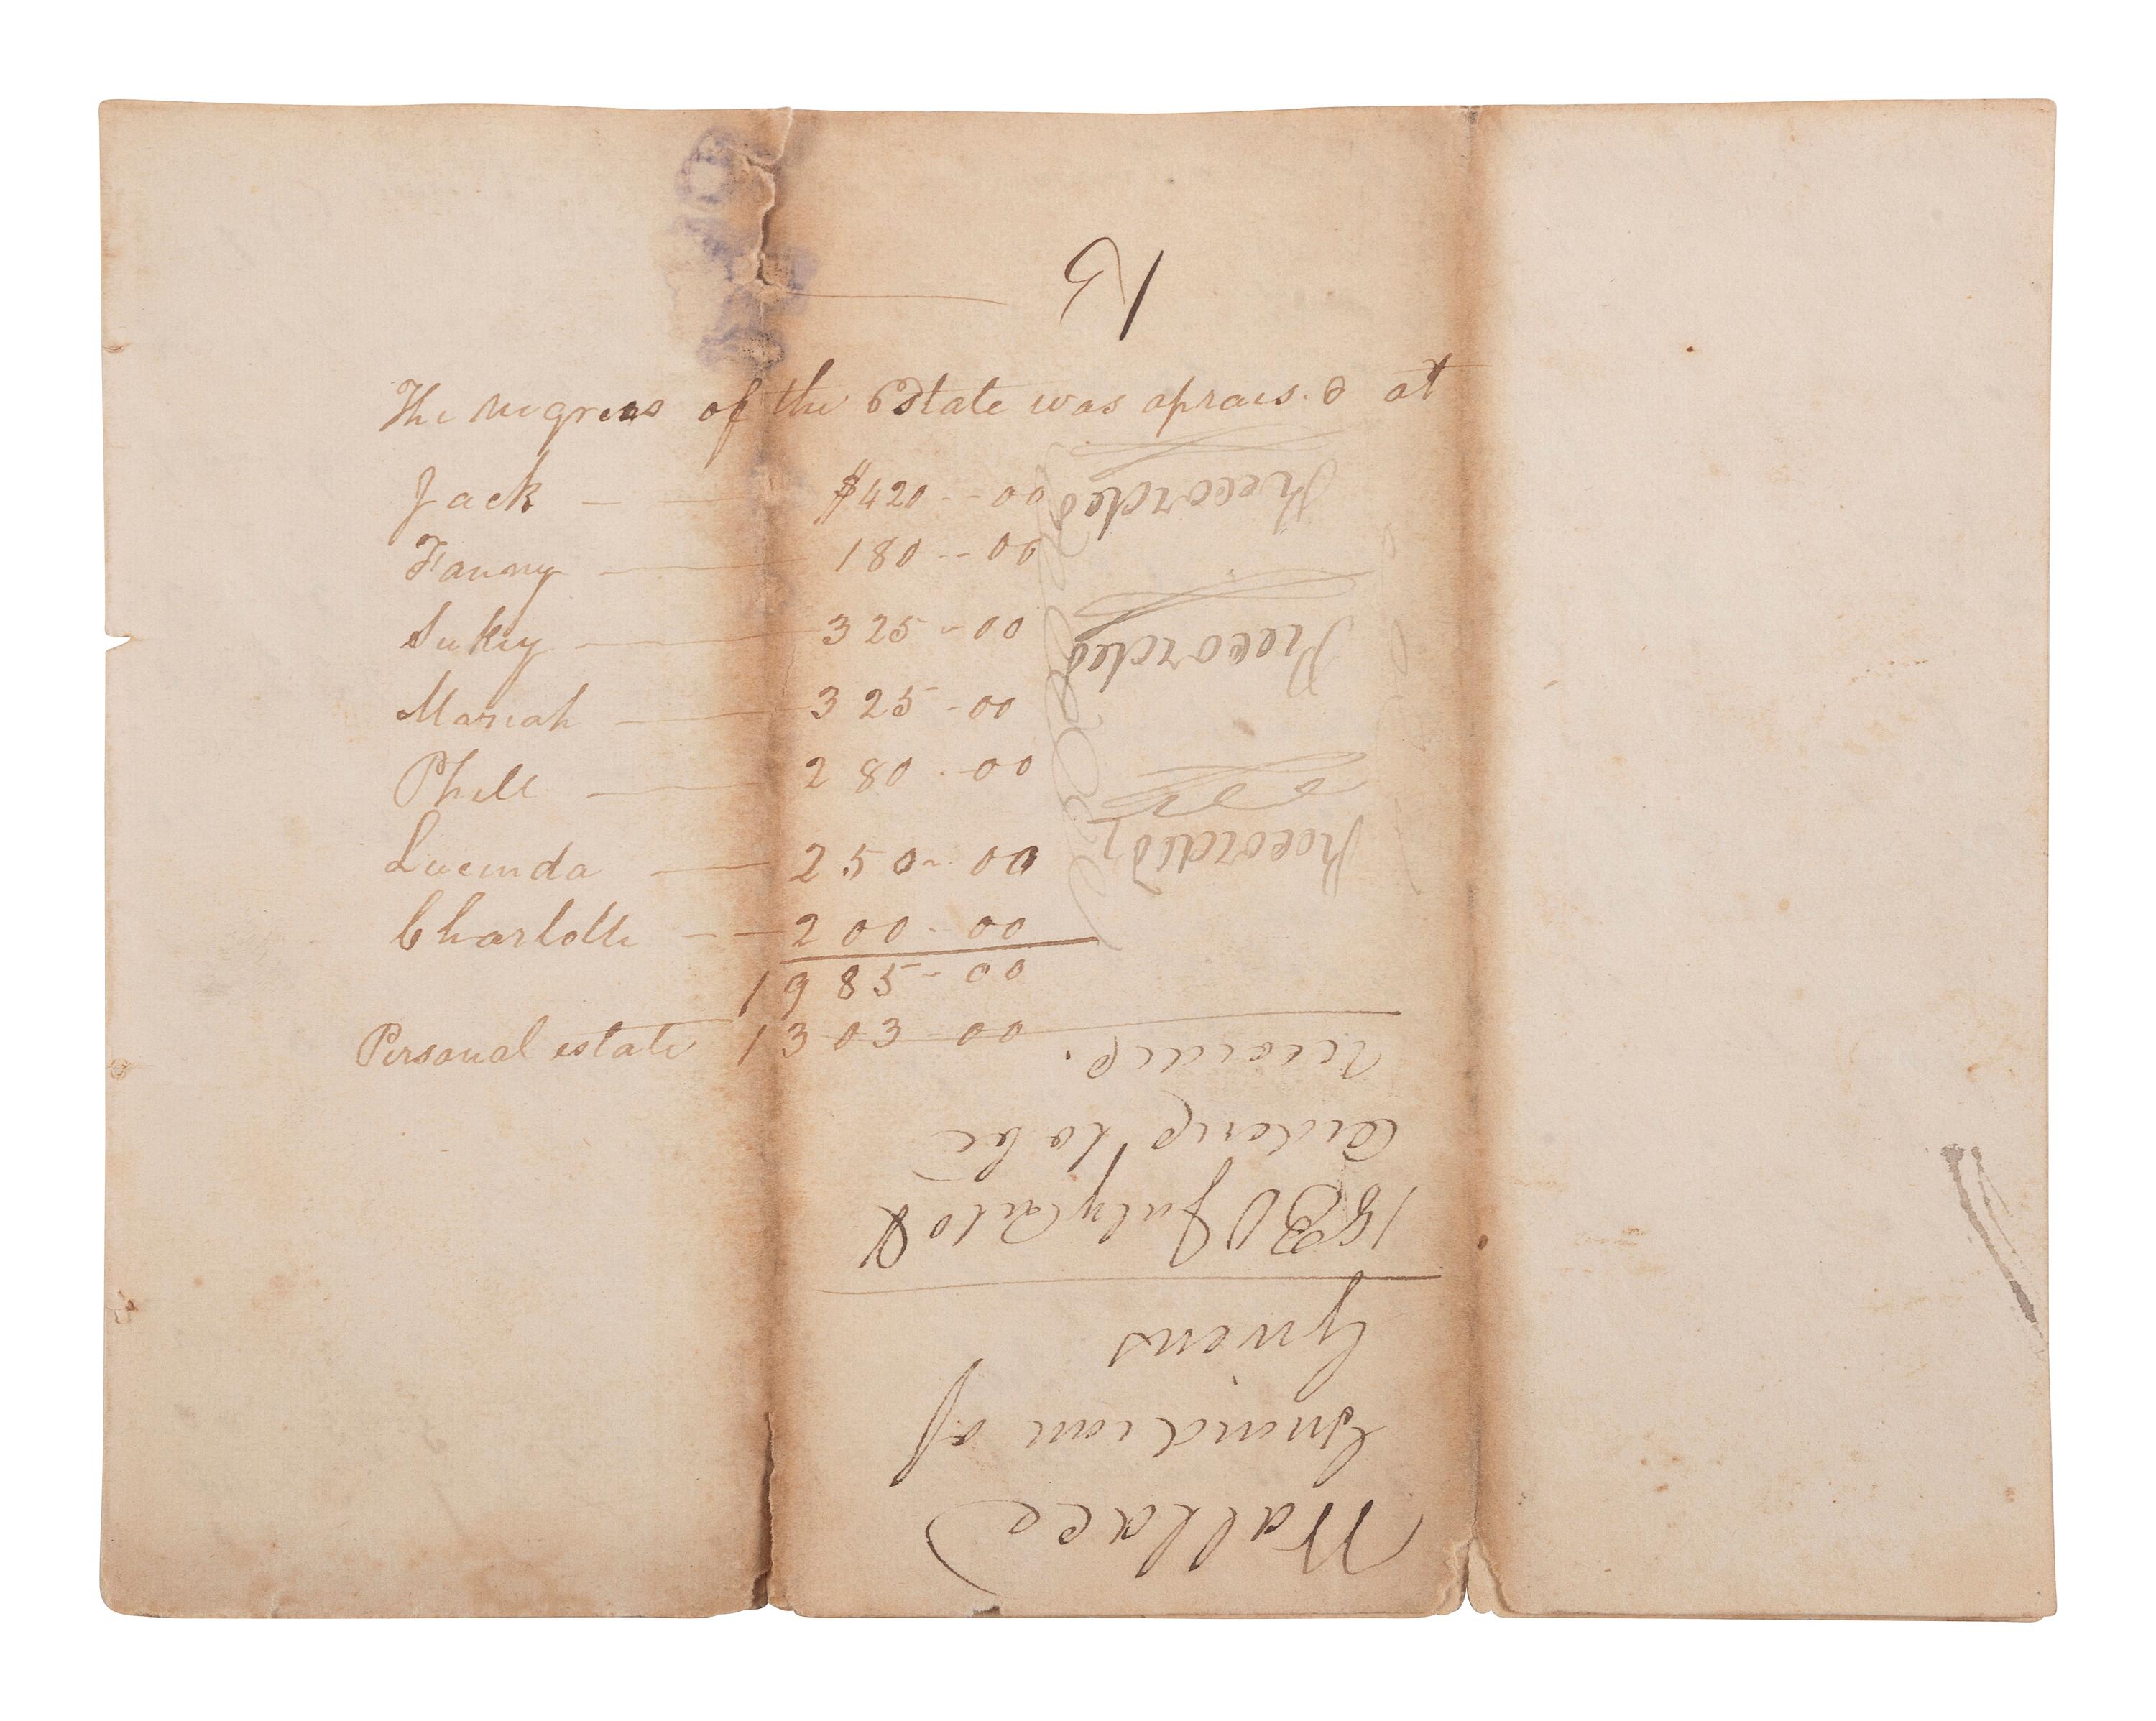 The negroes of the Estate was aprais.d at
Jack — — $420--00
Fanny — 180--00
Sukey — 325-00
Mariah — 325-00
Phill — 280.-00
Lucinda — 250-00
Charlotte -- 200.00
1985-00
Personal estate 1303-00
Wallace
Guardian of
Givens
1830 July
to be
Recorded
Recorded
Recorded